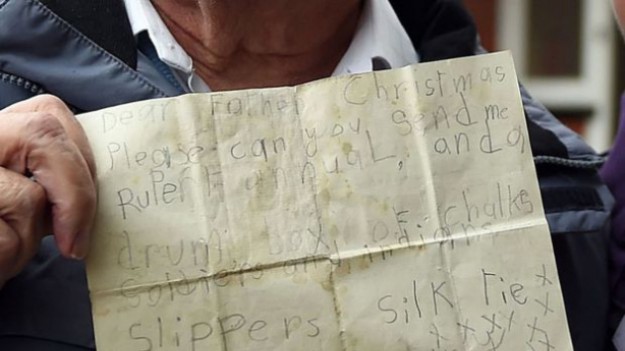 Dear Father Christmas
Please can you send me
RuPert annuaL, and a
drum box of chalks
Soldiers and indians
Slippers Silk Tie x
x x x